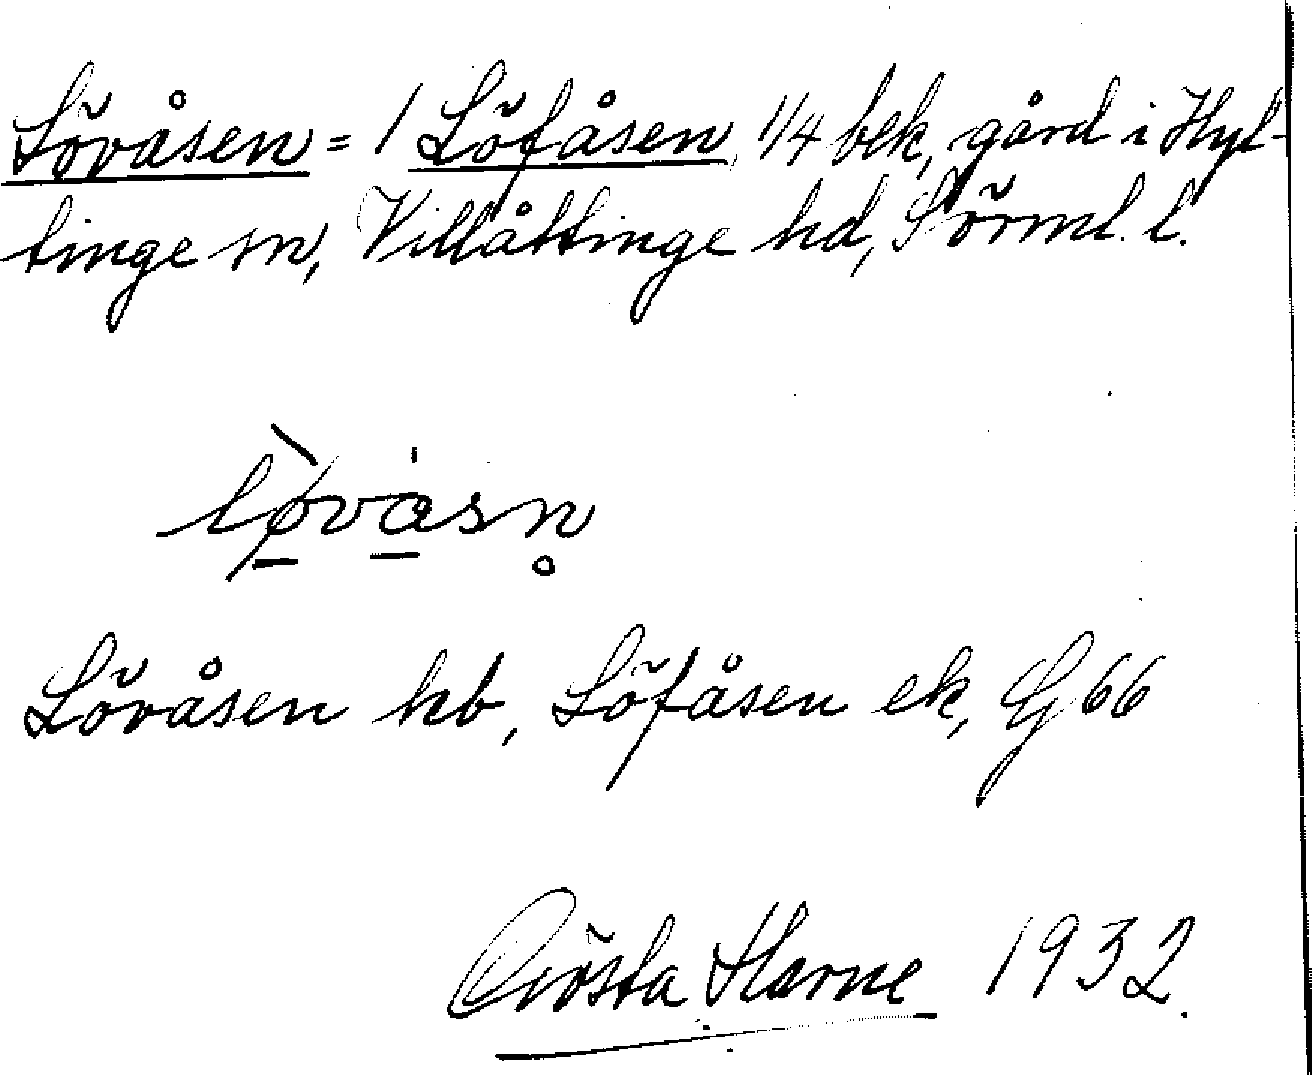 Lövåsen = 1 Löfåsen, 1/4 bek, gård i Hyl-
tinge sn, Villåttinge hd, Sörml. l.
lø̀våsn̥
Lövåsen hb, Löfåsen ek, G 66
Gösta Harne 1932.